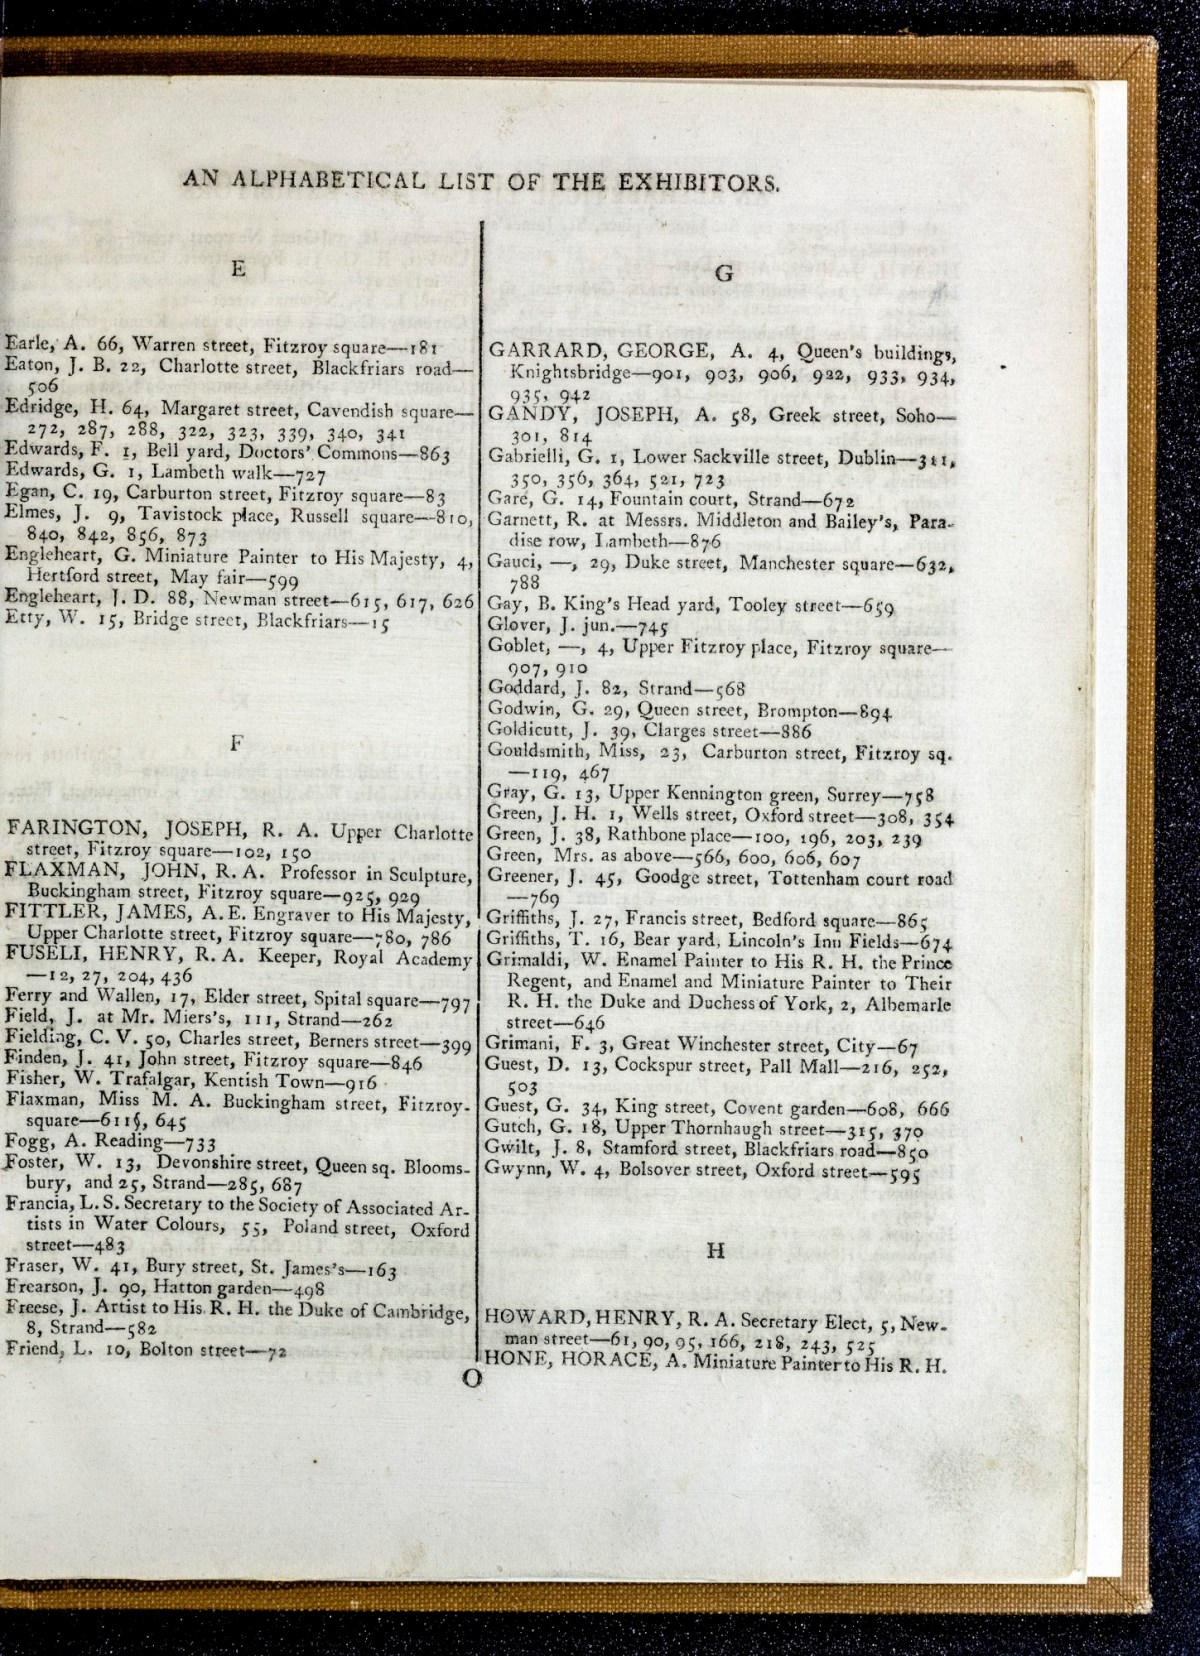 AN ALPHABETICAL LIST OF THE EXHIBITORS.
E
Earle, A. 66, Warren street, Fitzroy square—181
Eaton, J. B. 22, Charlotte street, Blackfriars road—
506
Edridge, H. 64, Margaret street, Cavendish square—
272, 287, 288, 322, 323, 339, 340, 341
Edwards, F. 1, Bell yard, Doctors' Commons—863
Edwards, G. 1, Lambeth walk—727
Egan, C. 19, Carburton street, Fitzroy square—83
Elmes, J. 9, Tavistock place, Russell square—810,
840, 842, 856, 873
Engleheart, G. Miniature Painter to His Majesty, 4,
Hertford street, May fair—599
Engleheart, J. D. 88, Newman street—615, 617, 626
Etty, W. 15, Bridge street, Blackfriars—15
F
FARINGTON, JOSEPH, R. A. Upper Charlotte
street, Fitzroy square—102, 150
FLAXMAN, JOHN, R. A. Professor in Sculpture,
Buckingham street, Fitzroy square—925, 929
FITTLER, JAMES, A. E. Engraver to His Majesty,
Upper Charlotte street, Fitzroy square—780, 786
FUSELI, HENRY, R. A. Keeper, Royal Academy
—12, 27, 204, 436
Ferry and Wallen, 17, Elder street, Spital square—797
Field, J. at Mr. Miers's, 111, Strand—262
Fielding, C. V. 50, Charles street, Berners street—399
Finden, J. 41, John street, Fitzroy square—846
Fisher, W. Trafalgar, Kentish Town—916
Flaxman, Miss M. A. Buckingham street, Fitzroy-
square—611§, 645
Fogg, A. Reading—733
Foster, W. 13, Devonshire street, Queen sq. Blooms-
bury, and 25, Strand—285, 687
Francia, L. S. Secretary to the Society of Associated Ar-
tists in Water Colours, 55, Poland street, Oxford
street—483
Fraser, W. 41, Bury street, St. James's—163
Frearson, J. 90, Hatton garden—498
Freese, J. Artist to His R. H. the Duke of Cambridge,
8, Strand—582
Friend, L. 10, Bolton street—72
G
GARRARD, GEORGE, A. 4, Queen's buildings,
Knightsbridge—901, 903, 906, 922, 933, 934,
935, 942
GANDY, JOSEPH, A. 58, Greek street, Soho—
301, 814
Gabrielli, G. 1, Lower Sackville street, Dublin—311,
350, 356, 364, 521, 723
Gare, G. 14, Fountain court, Strand—672
Garnett, R. at Messrs. Middleton and Bailey's, Para-
dise row, Lambeth—876
Gauci, —, 29, Duke street, Manchester square—632,
788
Gay, B. King's Head yard, Tooley street—659
Glover, J. jun.—745
Goblet, —, 4, Upper Fitzroy place, Fitzroy square—
907, 910
Goddard, J. 82, Strand—568
Godwin, G. 29, Queen street, Brompton—894
Goldicutt, J. 39, Clarges street—886
Gouldsmith, Miss, 23, Carburton street, Fitzroy sq.
—119, 467
Gray, G. 13, Upper Kennington green, Surrey—758
Green, J. H. 1, Wells street, Oxford street—308, 354
Green, J. 38, Rathbone place—100, 196, 203, 239
Green, Mrs. as above—566, 600, 606, 607
Greener, J. 45, Goodge street, Tottenham court road
—769
Griffiths, J. 27, Francis street, Bedford square—865
Griffiths, T. 16, Bear yard, Lincoln's Inn Fields—674
Grimaldi, W. Enamel Painter to His R. H. the Prince
Regent, and Enamel and Miniature Painter to Their
R. H. the Duke and Duchess of York, 2, Albemarle
street—646
Grimani, F. 3, Great Winchester street, City—67
Guest, D. 13, Cockspur street, Pall Mall—216, 252,
503
Guest, G. 34, King street, Covent garden—608, 666
Gutch, G. 18, Upper Thornhaugh street—315, 370
Gwilt, J. 8, Stamford street, Blackfriars road—850
Gwynn, W. 4, Bolsover street, Oxford street—595
H
HOWARD, HENRY, R. A. Secretary Elect, 5, New-
man street—61, 90, 95, 166, 218, 243, 525
HONE, HORACE, A. Miniature Painter to His R. H.
O